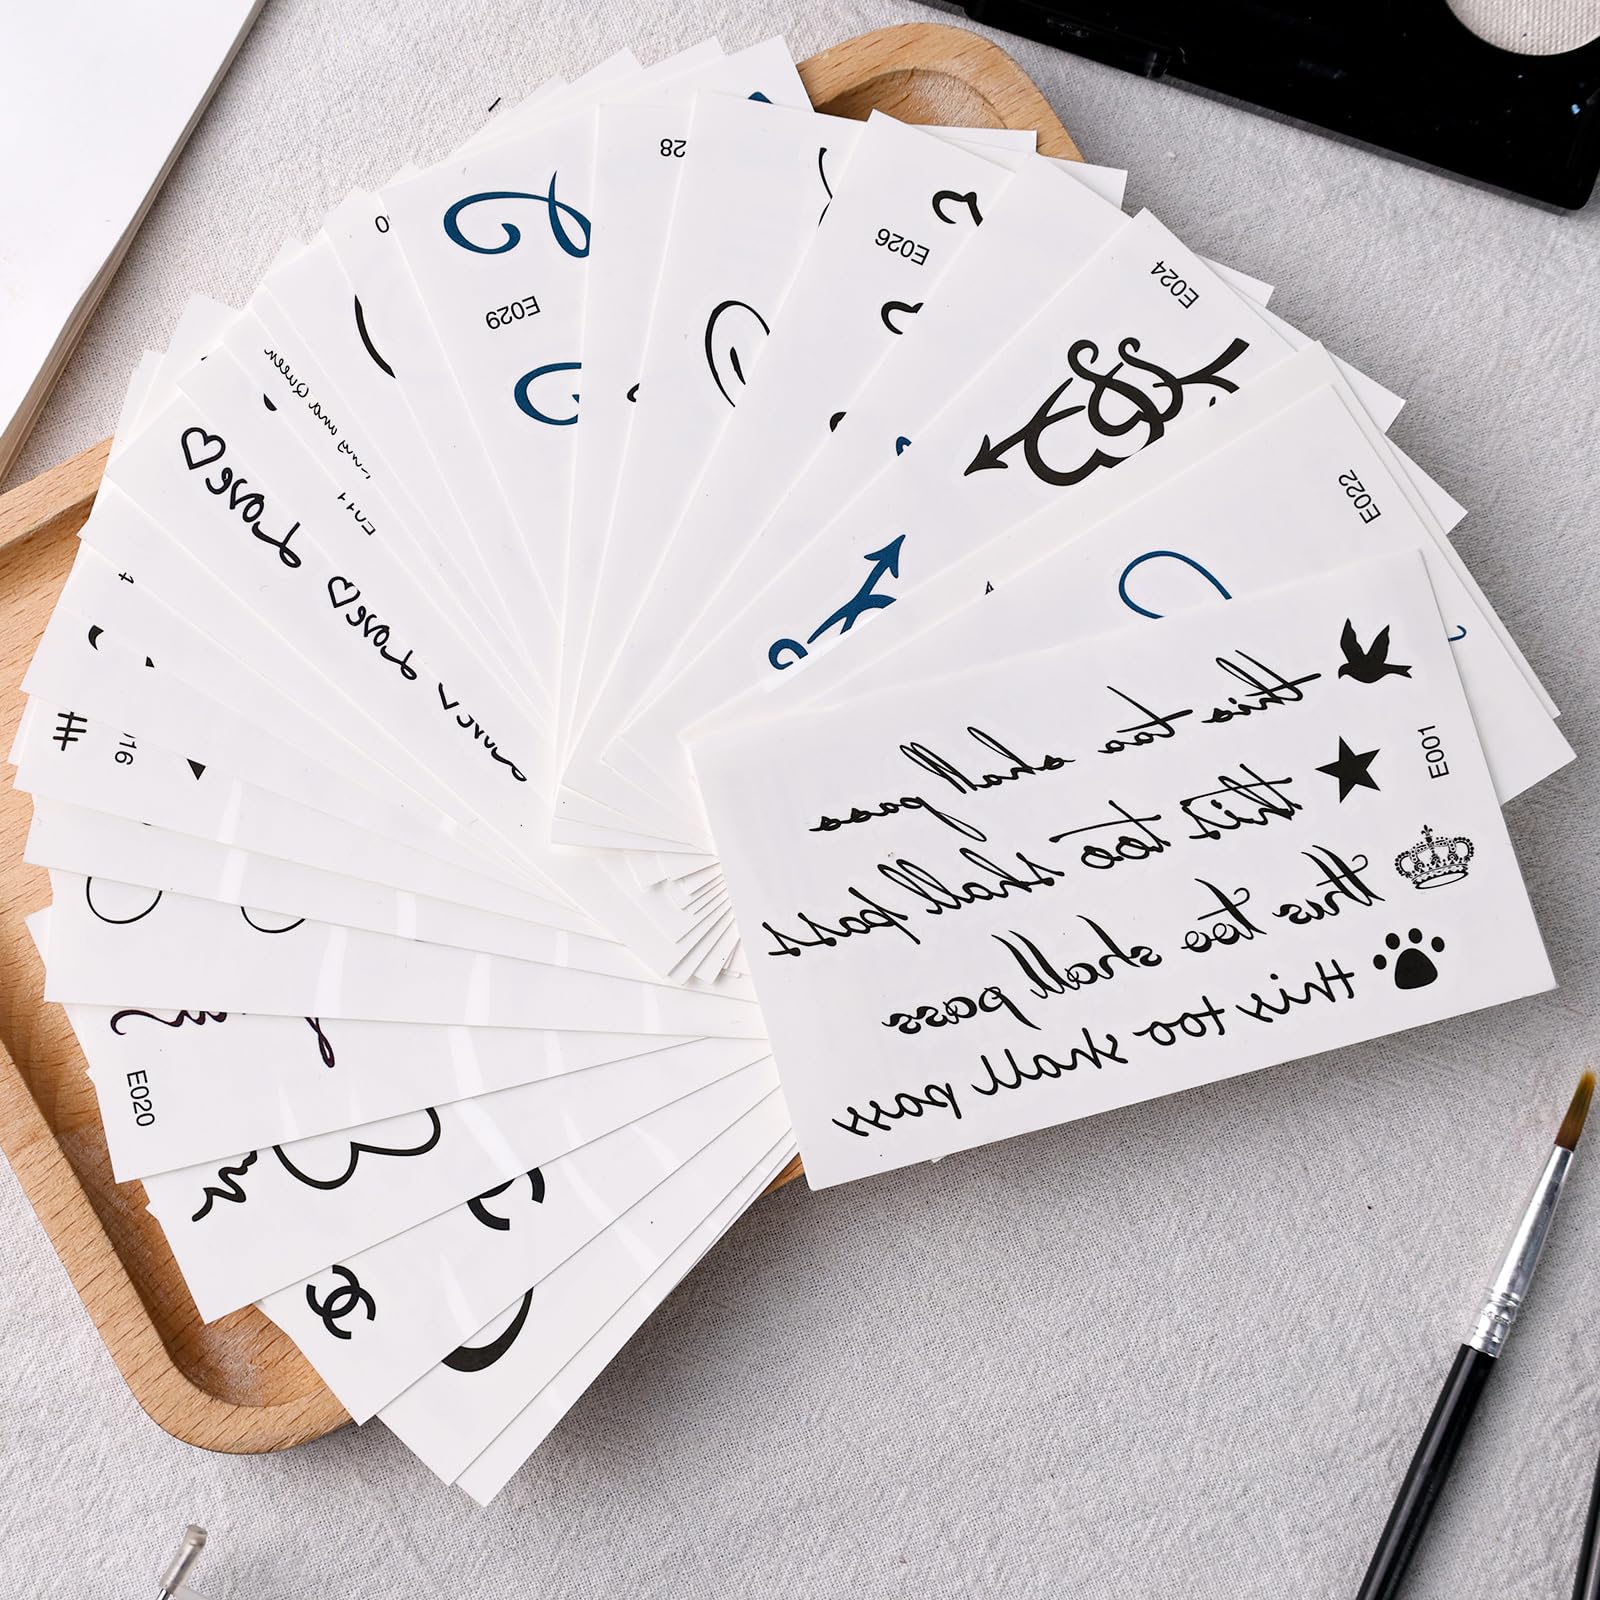 28
E026
E024
E029
E022
Queen
E011
Love
Love
E001
this too shall pass
this too shall pass
this too shall pass
this too shall pass
16
E020